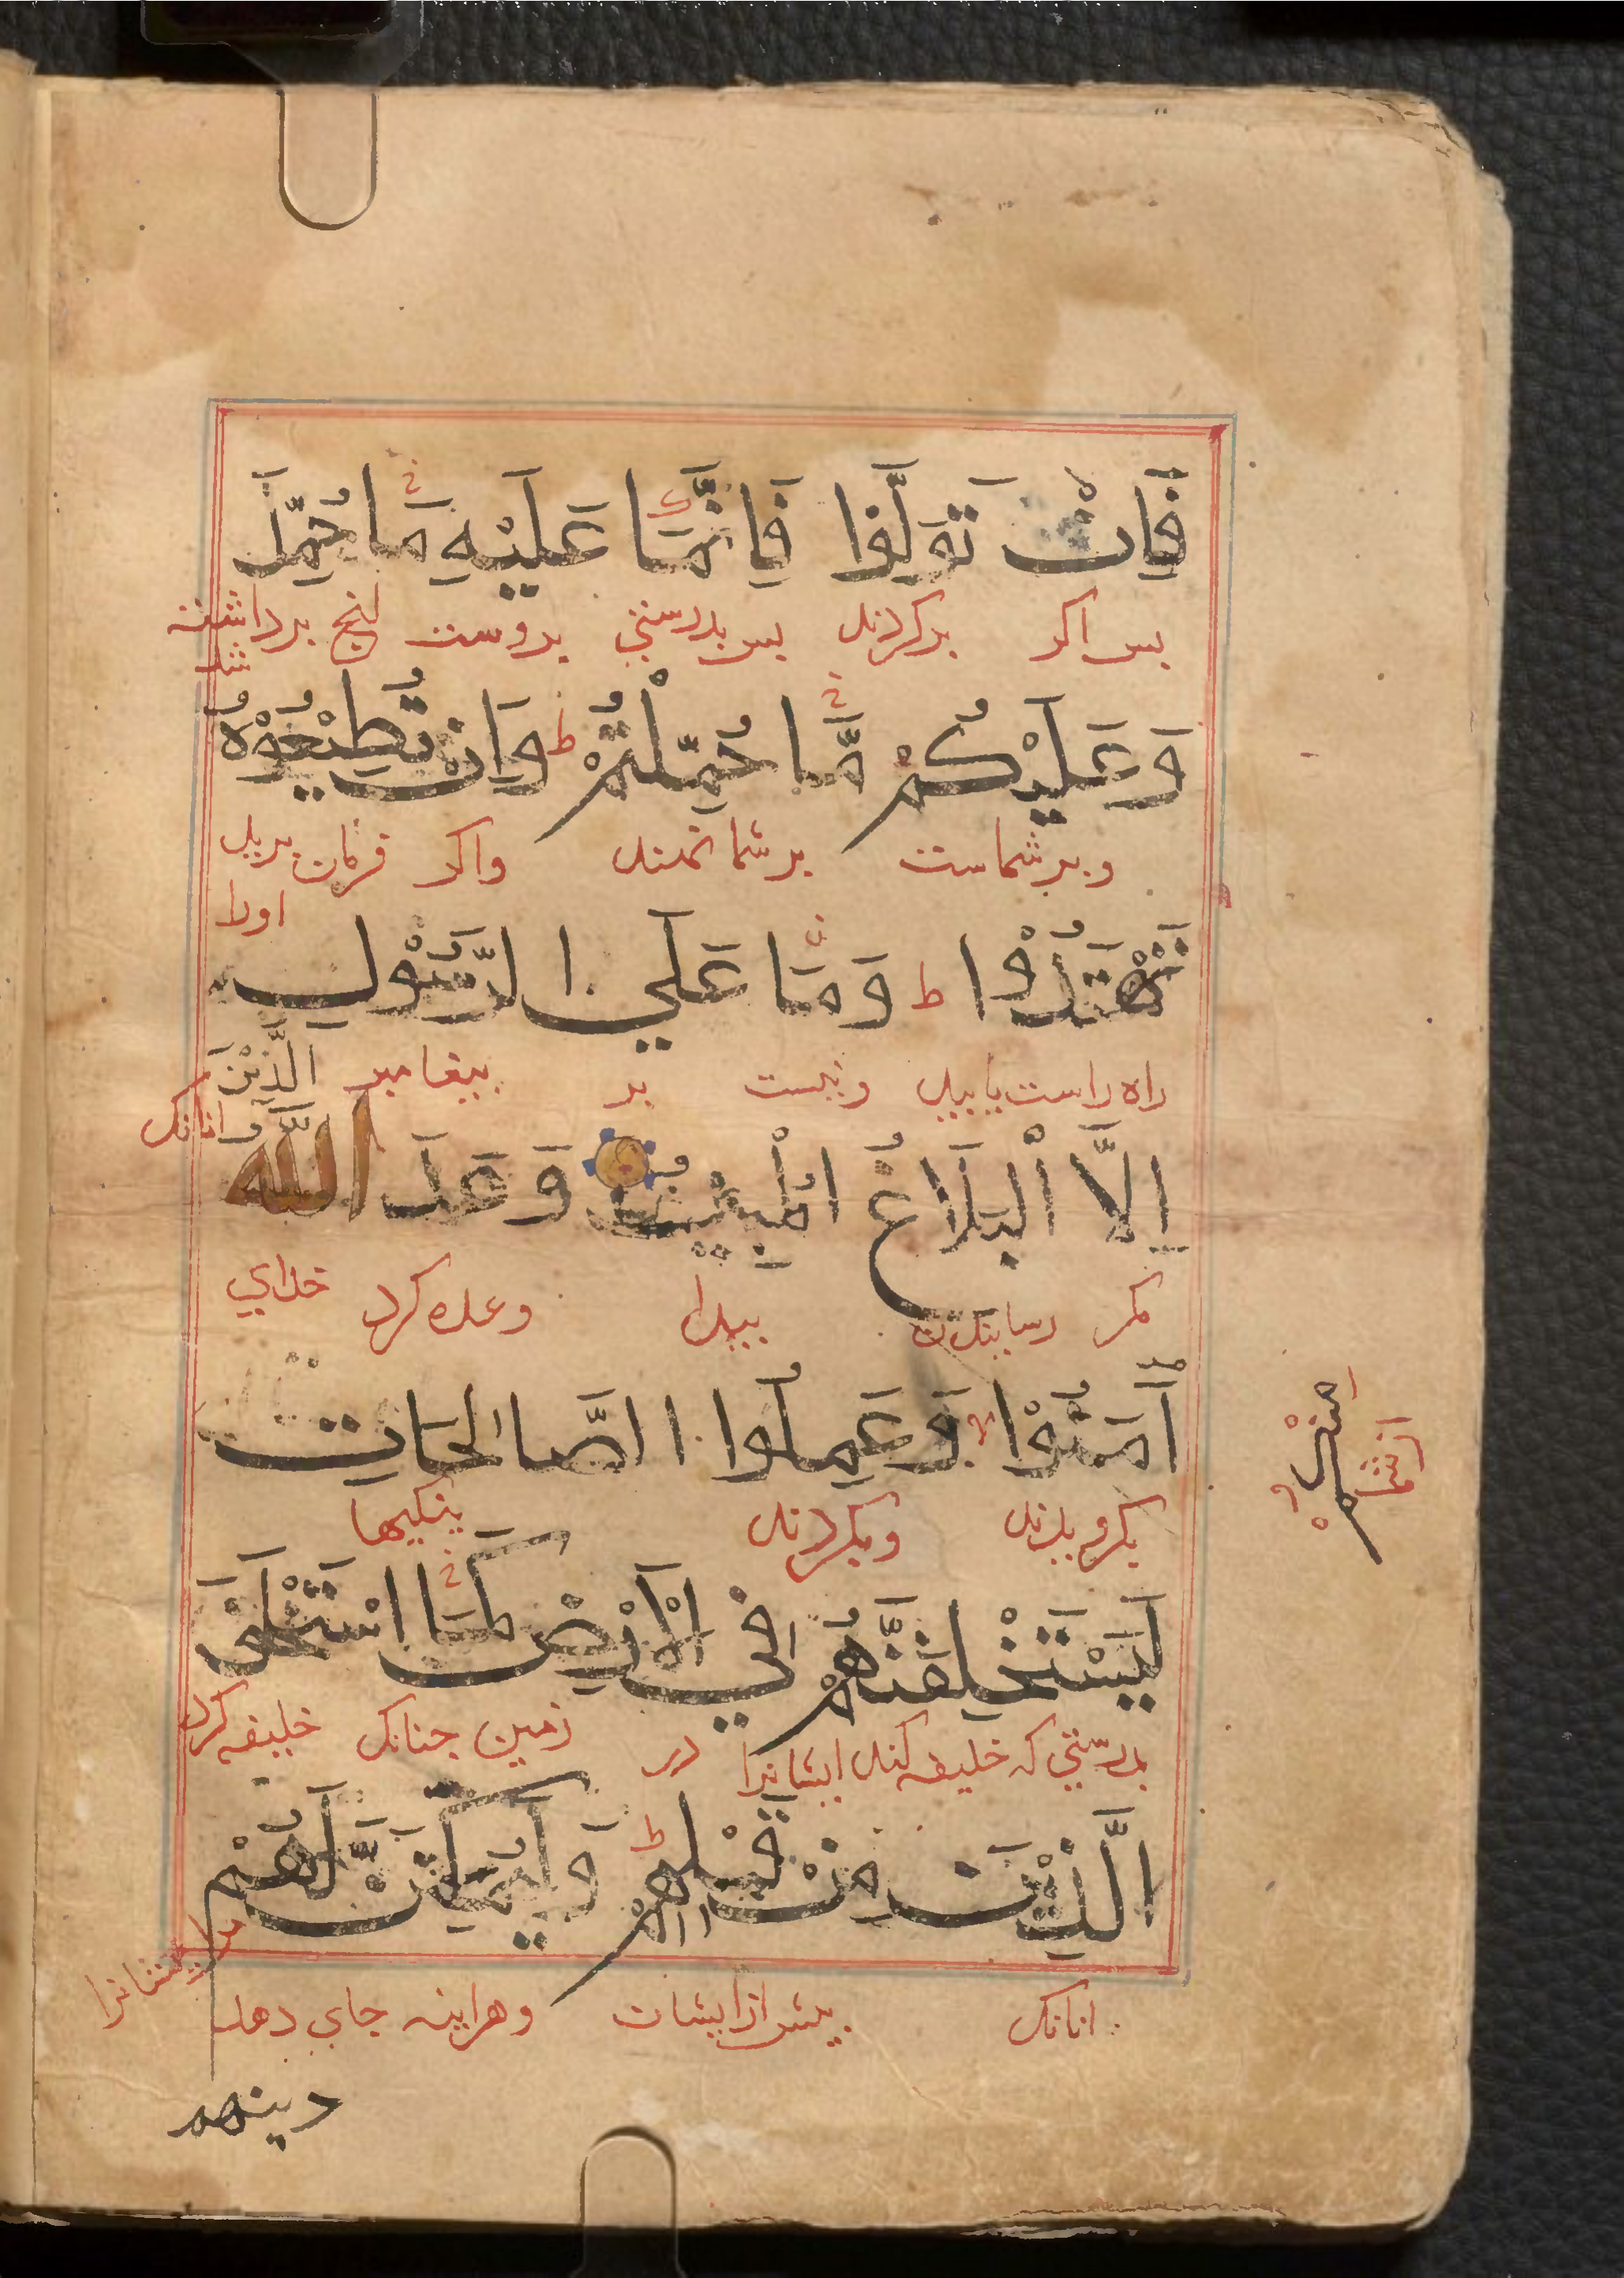 فَاِنْ تَوَلَّوْا فَاِنَّمَا عَلَيْهِ مَا حُمِّلَ
بس اكر بركردند بس بدرستي بروست انج برداشته
شد
وَعَلَيْكُمْ مَّا حُمِّلْتُمْ ط وَاِنْ تُطِيْعُوْهُ
وبرشماست برشما نهند واكر فرمان بريد
اورا
تَهْتَدُوْا ط وَمَا عَلَي الرَّسُوْلِ
راه راست يابيد ونيست بر بيغامبر
اِلَّا الْبَلَاغُ الْمُبِيْنُ وَعَدَ اللّٰهُ الَّذِيْنَ
مكر رسانيدن بيدا وعده كرد خداي انانك
اٰمَنُوْا مِنْكُمْ وَعَمِلُوا الصَّالِحَاتِ
بكرويدند از شما وبكردند نيكيها
لَيَسْتَخْلِفَنَّهُمْ فِي الْاَرْضِ كَمَا اسْتَخْلَفَ
بدرستي كه خليفه كند ايشانرا در زمين جنانك خليفه كرد
الَّذِيْنَ مِنْ قَبْلِهِمْ ط وَلَيُمَكِّنَنَّ لَهُمْ
انانك بيش از ايشان وهراينه جاي دهد مر ايشانرا
دينهم